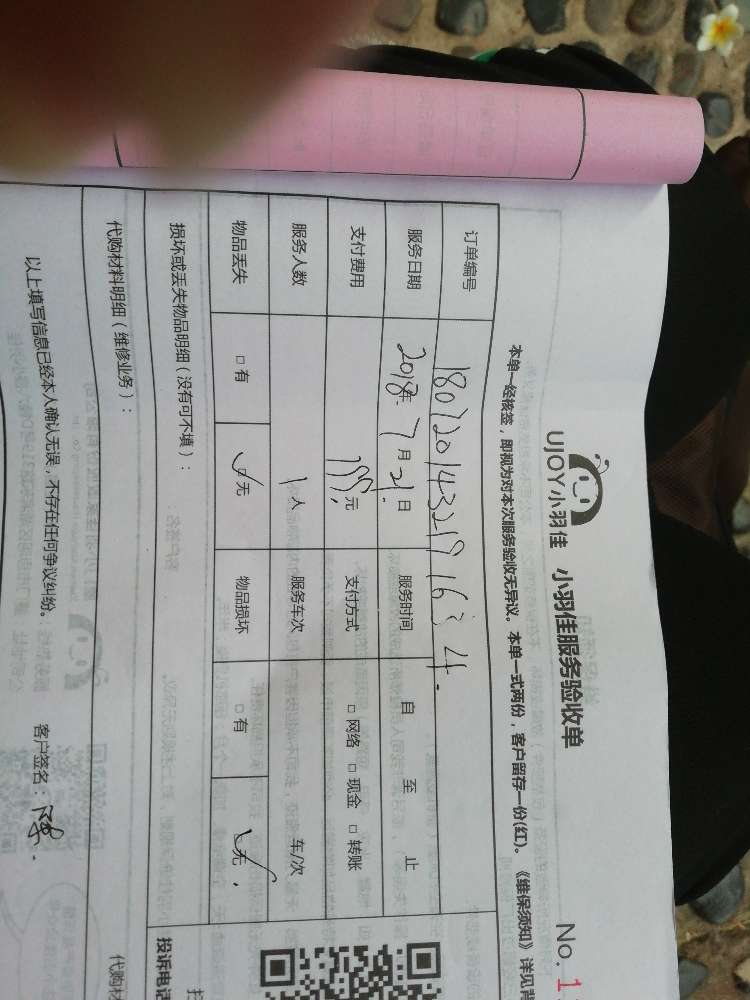 UJOY小羽佳 小羽佳服务验收单
No.1
本单一经核签，即视为对本次服务验收无异议。本单一式两份，客户留存一份(红)。《维保须知》详见背
订单编号 1807201432191634.
服务日期 2018年7月21日 服务时间 自 至 止
支付费用 199元 支付方式 □网络 □现金 □转账
服务人数 1人 服务车次 车/次
物品丢失 □有 ☑无 物品损坏 □有 ☑无
损坏或丢失物品明细（没有可不填）：
投诉电话
代购材料明细（维修业务）：
代购材
以上填写信息已经本人确认无误，不存在任何争议纠纷。 客户签名：